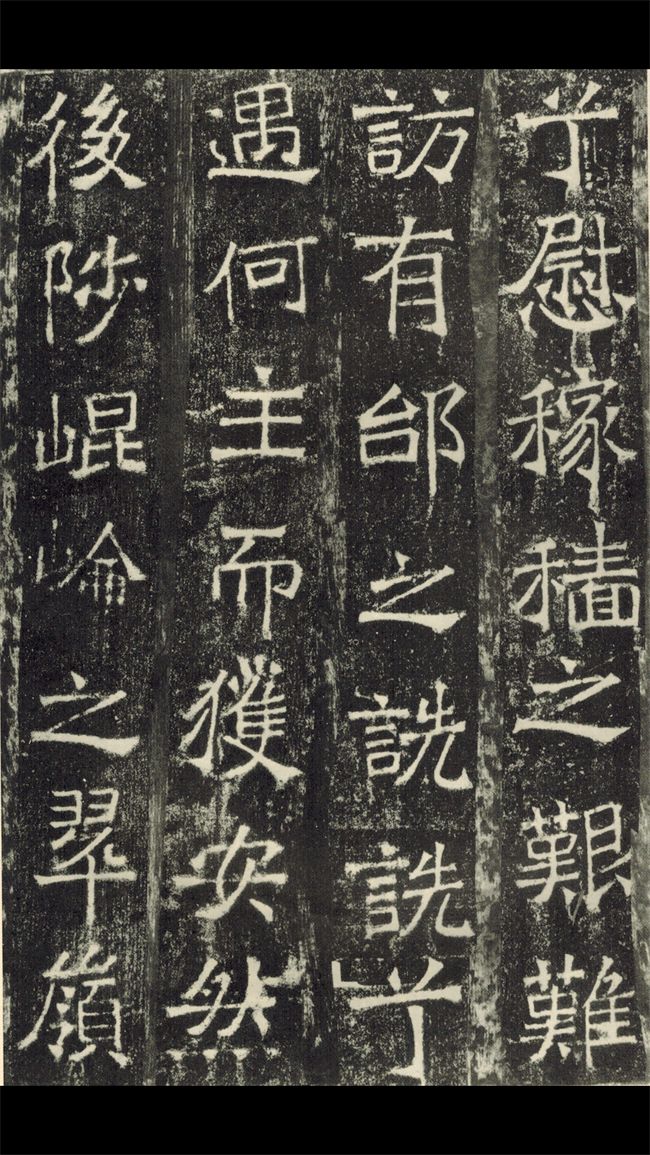 兮慰稼穡之艱難
訪有邰之詵詵兮
遇何主而獲安然
後陟崐崘之翠嶺